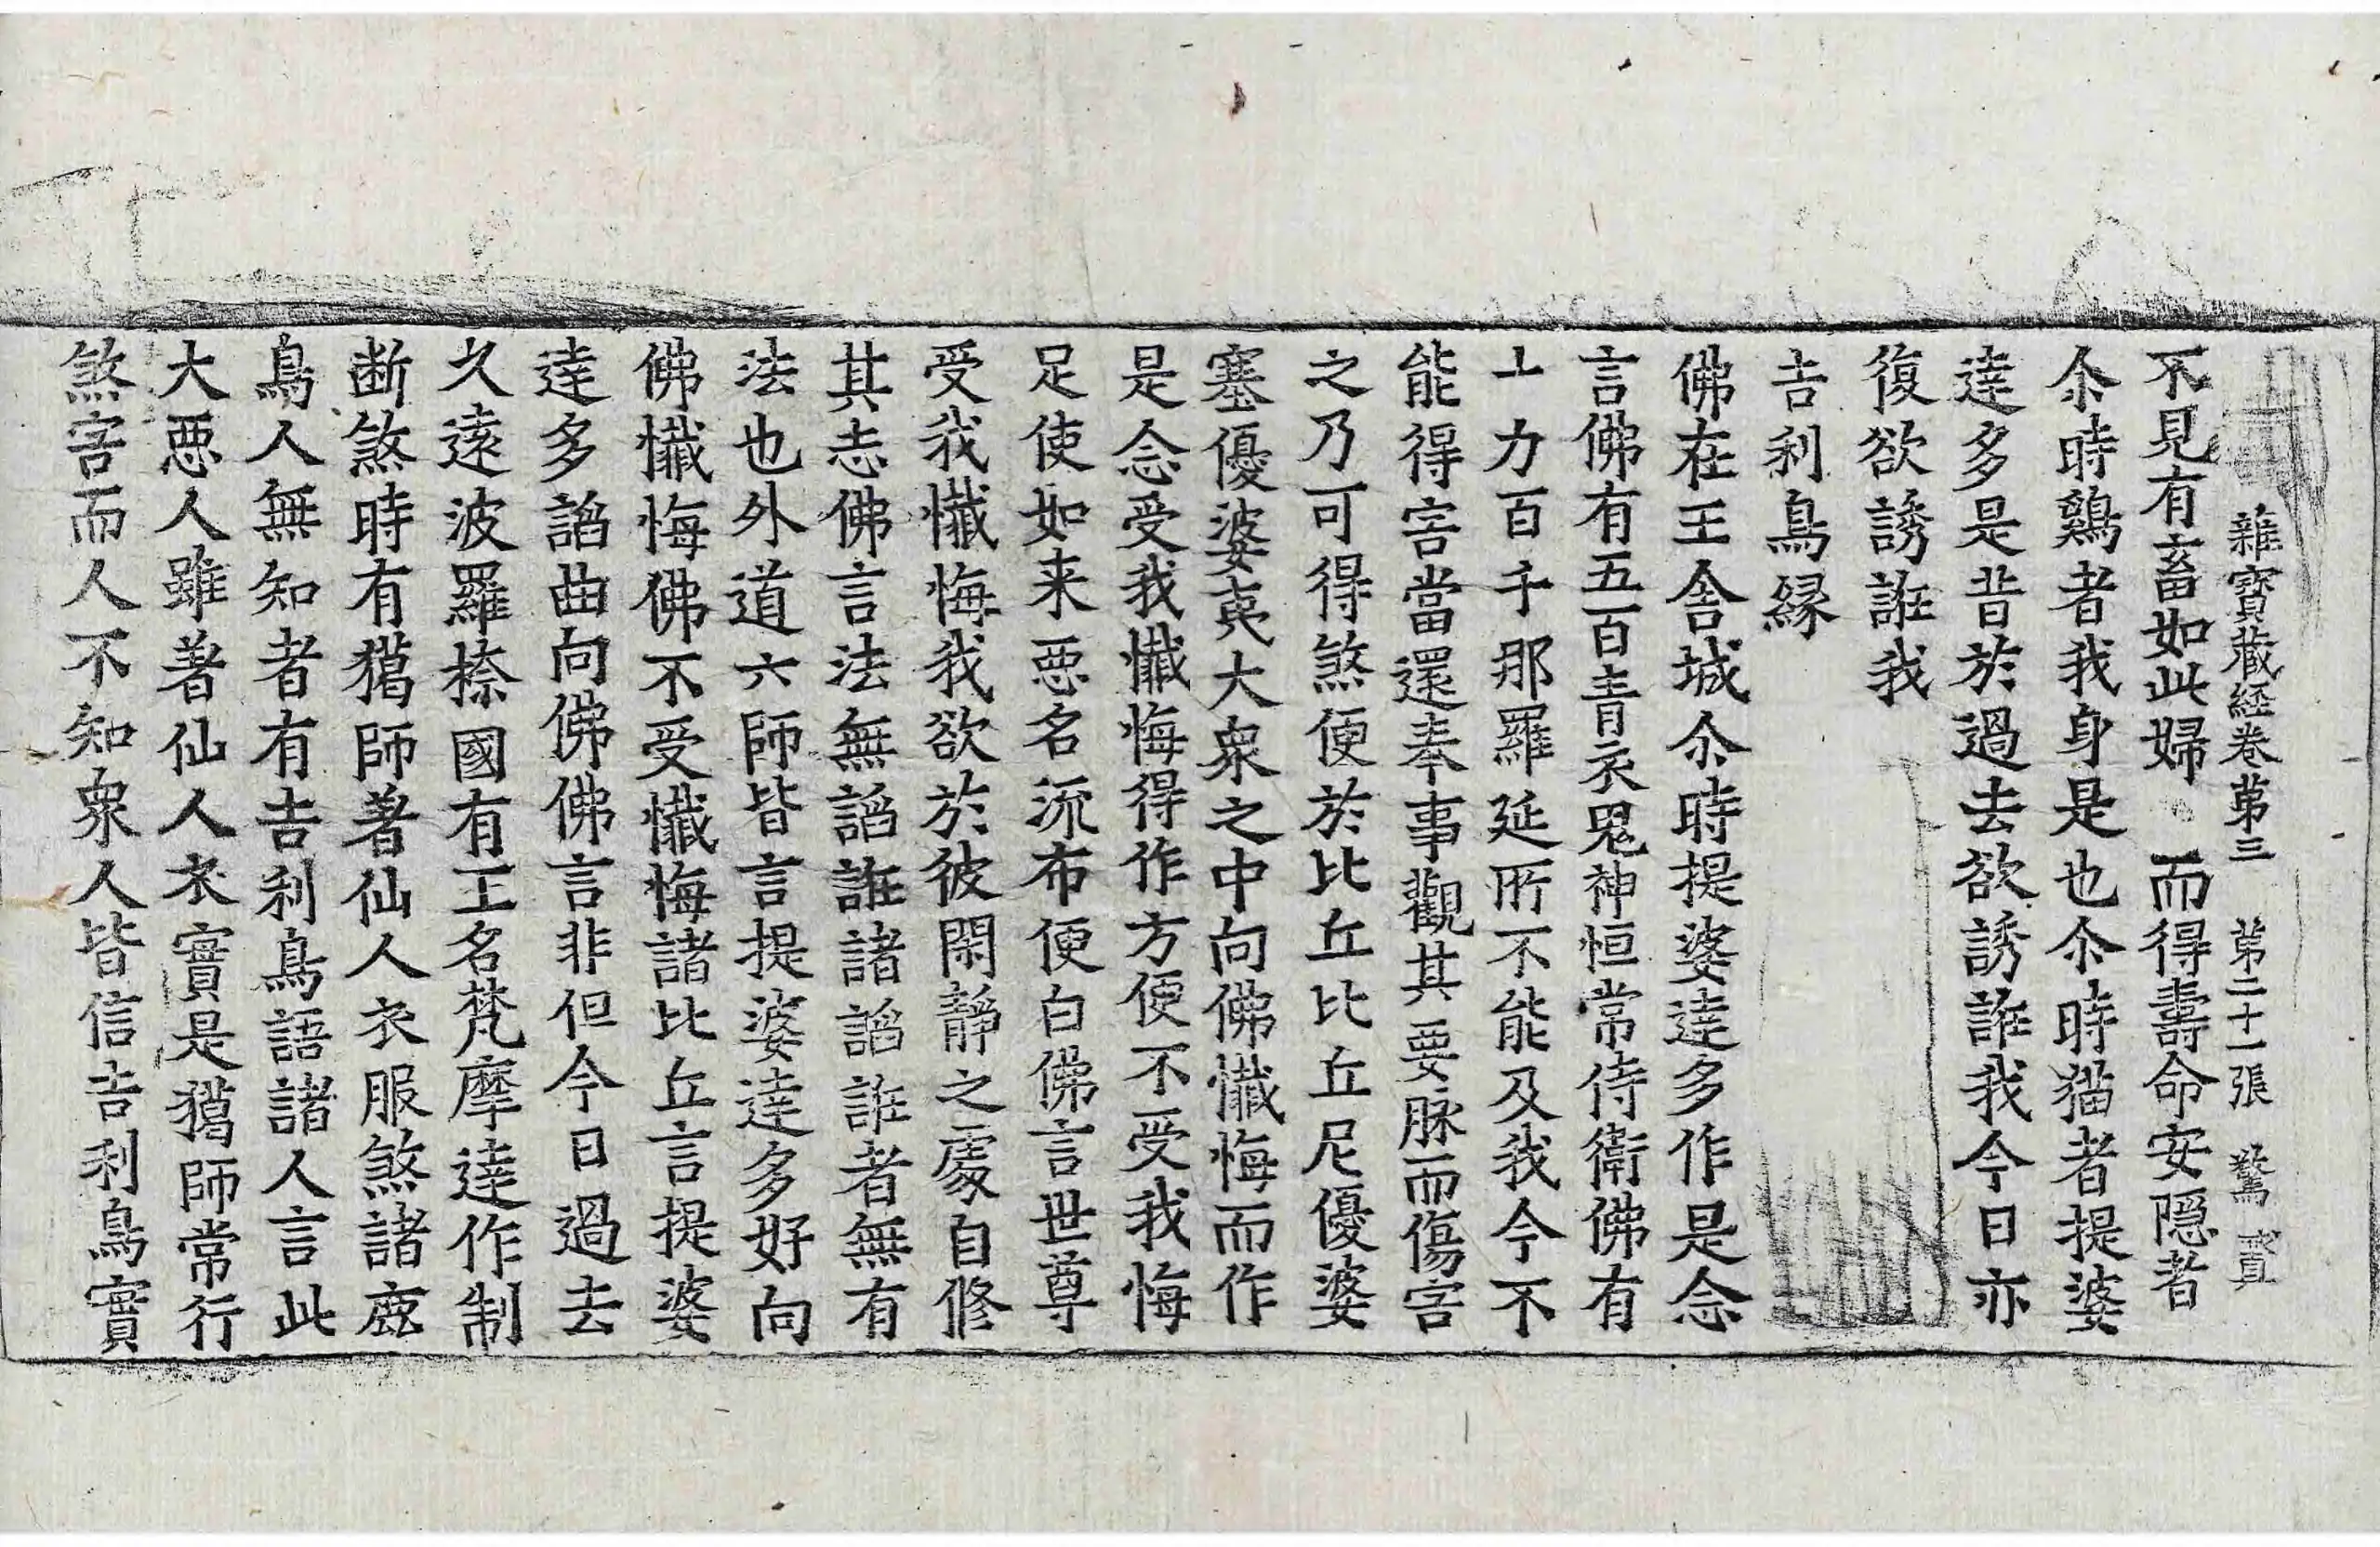 雜寶藏經卷第三　第二十一張　驚
不見有畜如此婦　而得壽命安隱者
尒時鷄者我身是也尒時猫者提婆
達多是昔於過去欲誘誑我今日亦
復欲誘誑我
吉利鳥緣
佛在王舍城尒時提婆達多作是念
言佛有五百青衣鬼神恒常侍衛佛有
十力百千那羅延所不能及我今不
能得害當還奉事觀其要脉而傷害
之乃可得煞便於比丘比丘尼優婆
塞優婆夷大衆之中向佛懺悔而作
是念受我懺悔得作方便不受我悔
足使如来惡名流布便白佛言世尊
受我懺悔我欲於彼閑靜之處自修
其志佛言法無諂誑諸諂誑者無有
法也外道六師皆言提婆達多好向
佛懺悔佛不受懺悔諸比丘言提婆
達多諂曲向佛佛言非但今日過去
久遠波羅㮈國有王名梵摩達作制
断煞時有獦師著仙人衣服煞諸鹿
鳥人無知者有吉利鳥語諸人言此
大惡人雖著仙人衣實是獦師常行
煞害而人不知衆人皆信吉利鳥實